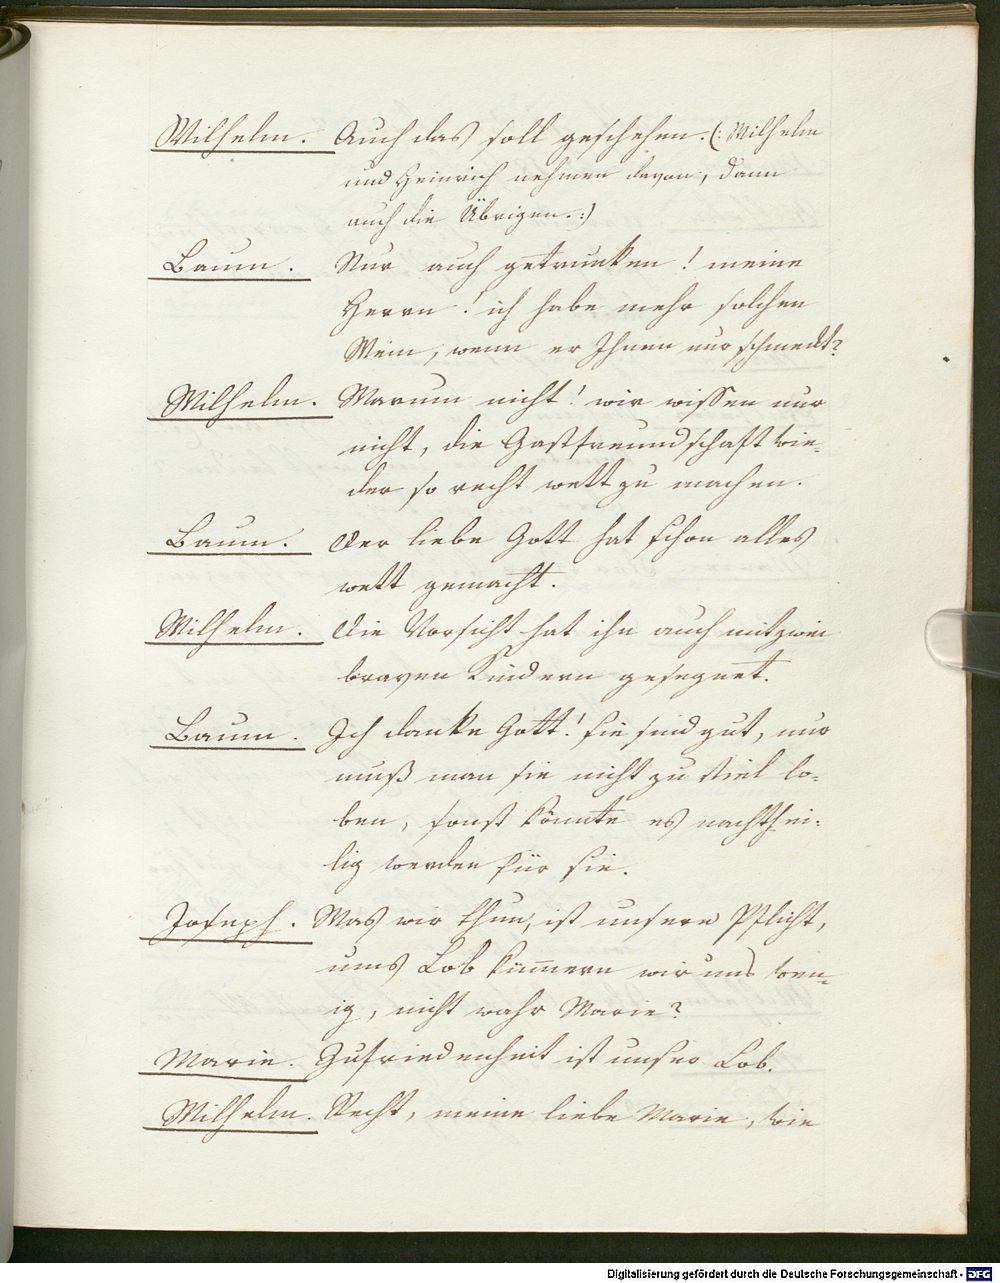 Wilhelm. Auch das soll geschehen. (: Wilhelm
und Heinrich nehmen davon, dann
auch die Übrigen. :)
Baum. Nur auch getrunken! meine
Herrn! ich habe mehr solchen
Wein, wenn er Ihnen nur schmeckt?
Wilhelm. Warum nicht! wir wissen nur
nicht, die Gastfreundschaft wie-
der so recht wett zu machen.
Baum. Der liebe Gott hat schon alles
wett gemacht.
Wilhelm. Die Vorsicht hat ihn auch mit zwei
braven Kindern gesegnet.
Baum. Ich danke Gott! sie sind gut, nur
muß man sie nicht zu viel lo-
ben, sonst könnte es nachthei-
lig werden für sie.
Joseph. Was wir thun, ist unsere Pflicht,
ums Lob kümmern wir uns wen-
ig, nicht wahr Marie?
Marie. Zufriedenheit ist unser Lob.
Wilhelm. Recht, meine liebe Marie, wie
Digitalisierung gefördert durch die Deutsche Forschungsgemeinschaft - DFG